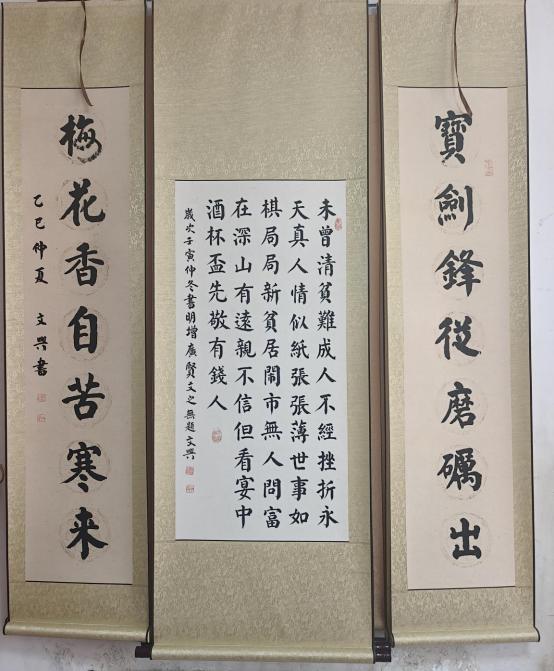 寶劍鋒從磨礪出
未曾清貧難成人不經挫折永
天真人情似紙張張薄世事如
棋局局新貧居鬧市無人問富
在深山有遠親不信但看宴中
酒杯盃先敬有錢人
歲次壬寅仲冬書明增廣賢文之無題文興
梅花香自苦寒来
乙巳仲夏 文興書